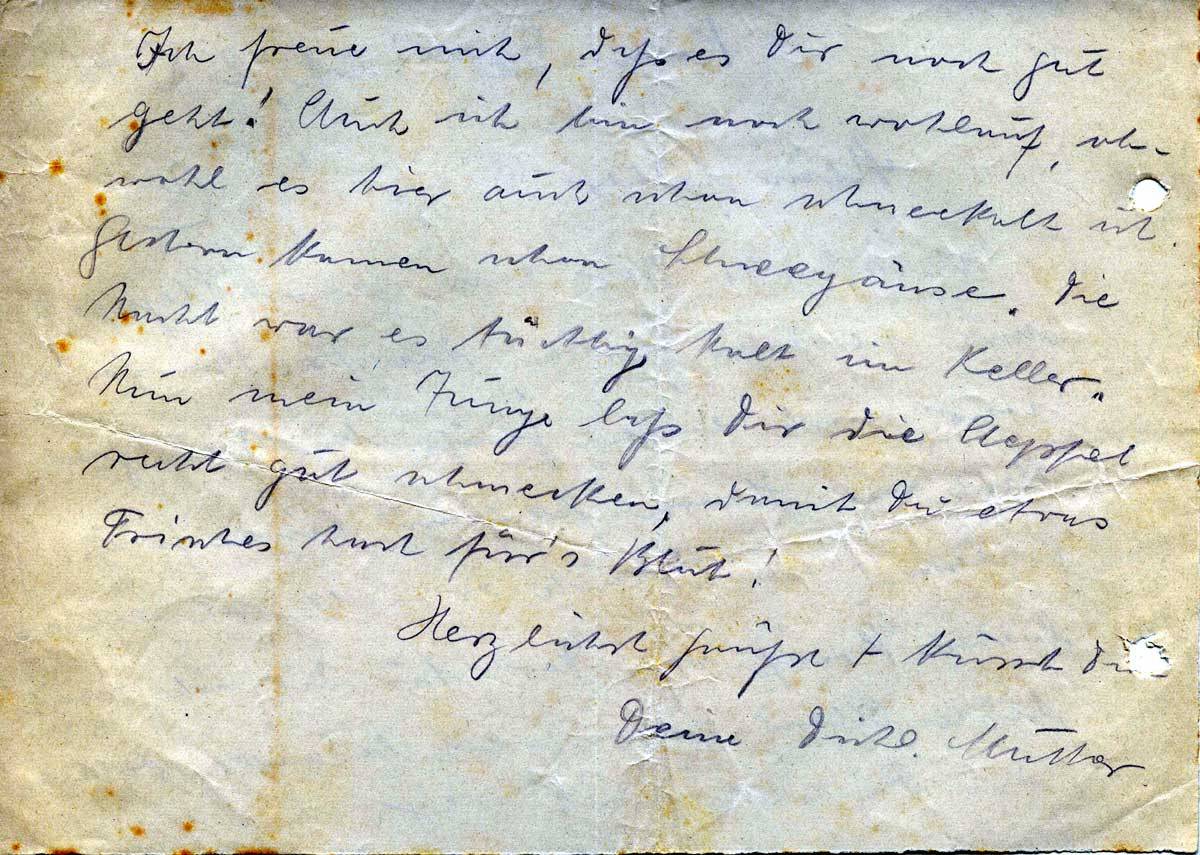 Ich freue mich, daß es Dir noch gut
geht! Auch ich bin noch wohlauf, ob-
wohl es hier auch schon schneekalt ist.
Gestern kamen schon Schneegänse. Die
Nacht war es tüchtig kalt im Keller.
Nun mein Junge laß Dir die Aepfel
recht gut schmecken, damit Du etwas
Frisches hast für's Blut!
Herzlichst grüßt + küsst
Deine Mutter